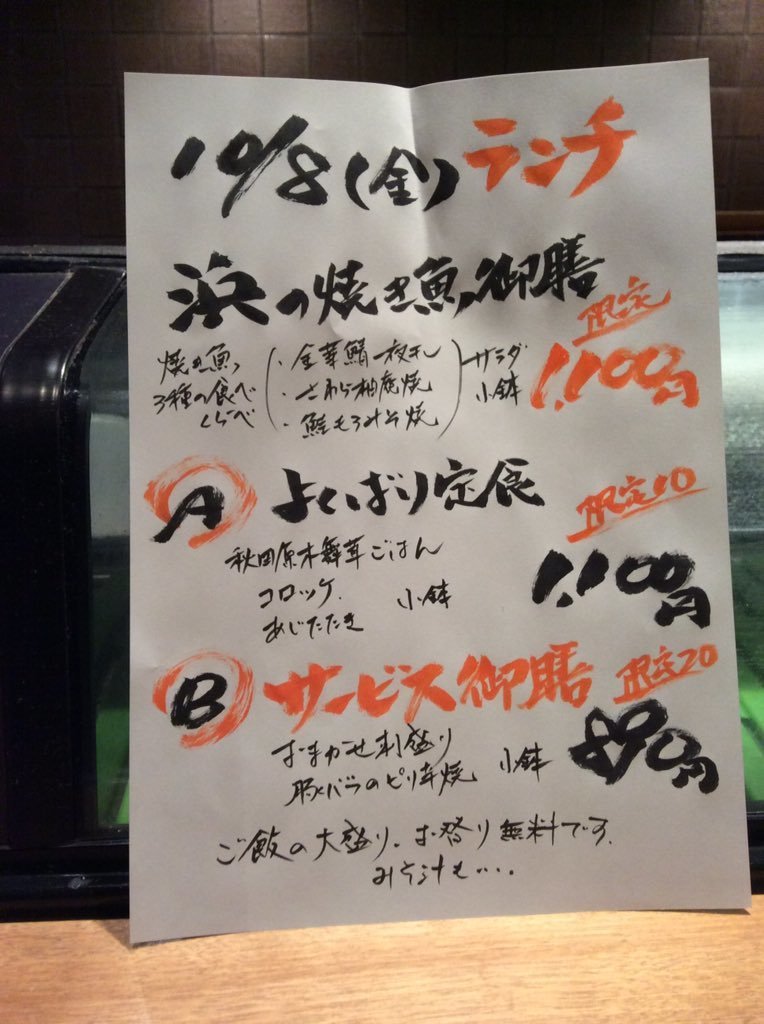 10/8(金)ランチ
浜の焼き魚御膳
限定
1,100円
焼き魚
3種の食べ
くらべ
・金華鯖一夜干し
・さわら柚庵焼
・鮭もろみそ焼
サラダ
小鉢
A よくばり定食
限定10
1,100円
秋田原木舞茸ごはん
コロッケ 小鉢
あじたたき
B サービス御膳 限定20
890円
おまかせ刺盛り
豚バラのピリ辛焼 小鉢
ご飯の大盛り、お替り無料です。
みそ汁も・・・。